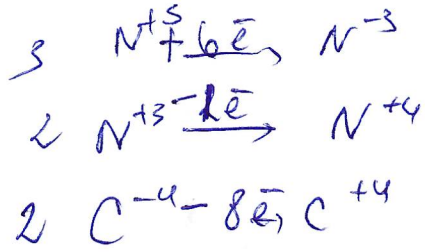 3 N⁺⁵ + 6ē → N⁻³
2 N⁺³ - 1ē → N⁺⁴
2 C⁻⁴ - 8ē → C⁺⁴